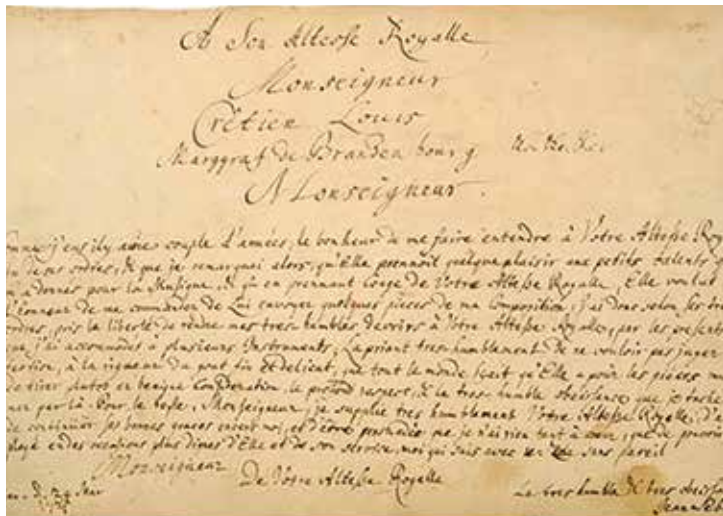 A Son Altesse Royalle
Monseigneur
Crêtien Louis
Marggraf de Brandenbourg &c. &c. &c.
Monseigneur.
j'eus il y a une couple d'années, le bonheur de me faire entendre à Votre Altesse Roy
de ses ordres, & que je remarquai alors, qu'Elle prennoit quelque plaisir aux petits talents
a donnés pour la Musique, & qu'en prennant Conge de Votre Altesse Royalle, Elle voulut
l'honneur de me commander de Lui envoyer quelques pieces de ma Composition: j'ai donc selon ses
ordres, pris la liberté de rendre mes tres-humbles devoirs à Votre Altesse Royalle, par les presents
que j'ai accommodés à plusieurs Instruments; La priant tres-humblement de ne vouloir pas juger
à la rigueur du gout fin et delicat, que tout le monde sçait qu'Elle a pour les pièces
de tirer plutot en benigne Consideration, le profond respect, & la tres-humble obéissance que je
par là. Pour le reste, Monseigneur, je supplie tres humblement Votre Altesse Royalle, d'
de continuer ses bonnes graces envers moi, et d'être persuadée que je n'ai rien tant à cœur, que de pouvoir
en des occasions plus dignes d'Elle et de son service, moi qui suis avec un zele sans pareil
Monseigneur
De Votre Altesse Royalle
Le tres humble & tres obeiss
Jean